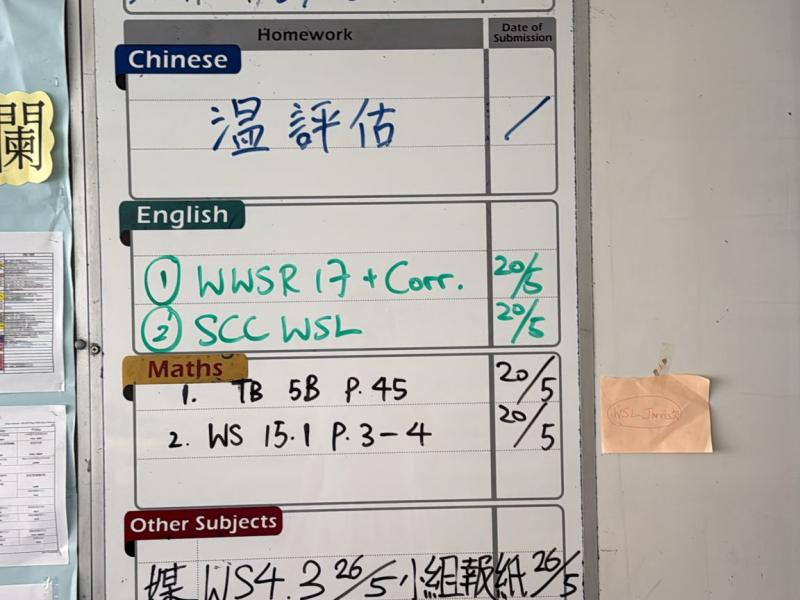 欄
Homework
Date of Submission
Chinese
温評估 /
English
① WWSR 17 + Corr. 20/5
② SCC WSL 20/5
Maths
1. TB 5B P.45 20/5
2. WS 15.1 P.3-4 20/5
Other Subjects
媒 WS4.3 26/5 小組報紙 26/5